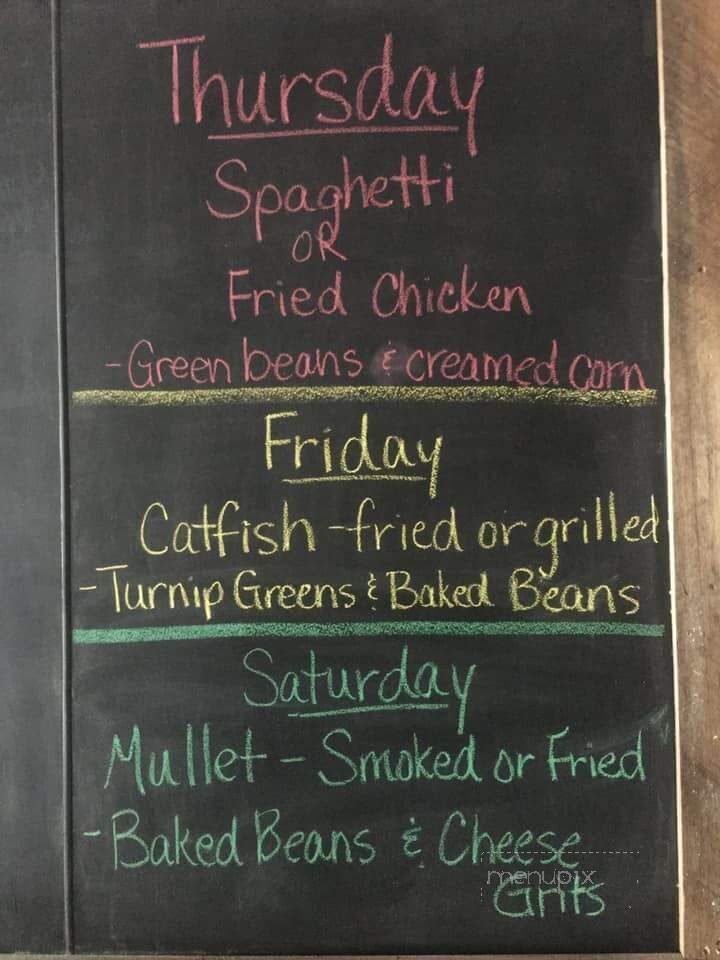 Thursday
Spaghetti
OR
Fried Chicken
-Green beans & creamed corn
Friday
Catfish -fried or grilled
-Turnip Greens & Baked Beans
Saturday
Mullet - Smoked or Fried
-Baked Beans & Cheese
menupix
Grits